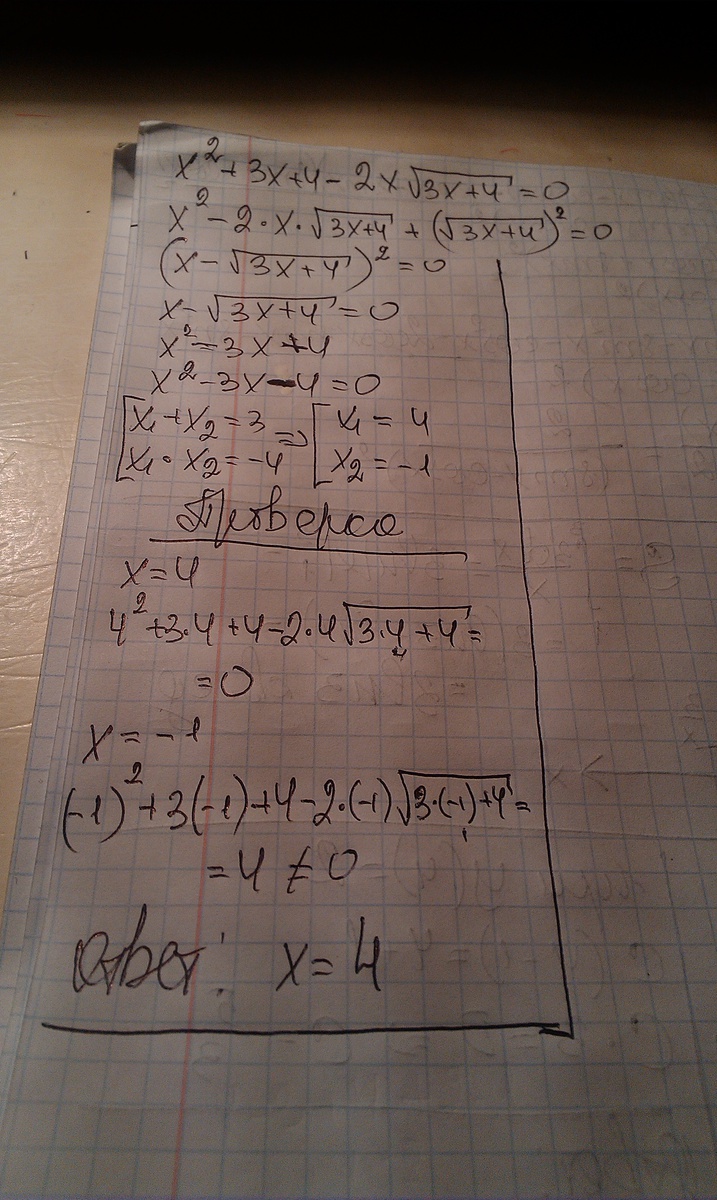 x² + 3x + 4 - 2x√(3x+4) = 0
x² - 2·x·√(3x+4) + (√(3x+4))² = 0
(x - √(3x+4))² = 0
x - √(3x+4) = 0
x² = 3x + 4
x² - 3x - 4 = 0
[x₁ + x₂ = 3 => [x₁ = 4
[x₁ · x₂ = -4 [x₂ = -1
Проверка
x = 4
4² + 3·4 + 4 - 2·4√(3·4+4) =
= 0
x = -1
(-1)² + 3(-1) + 4 - 2·(-1)√(3·(-1)+4) =
= 4 ≠ 0
Ответ: x = 4